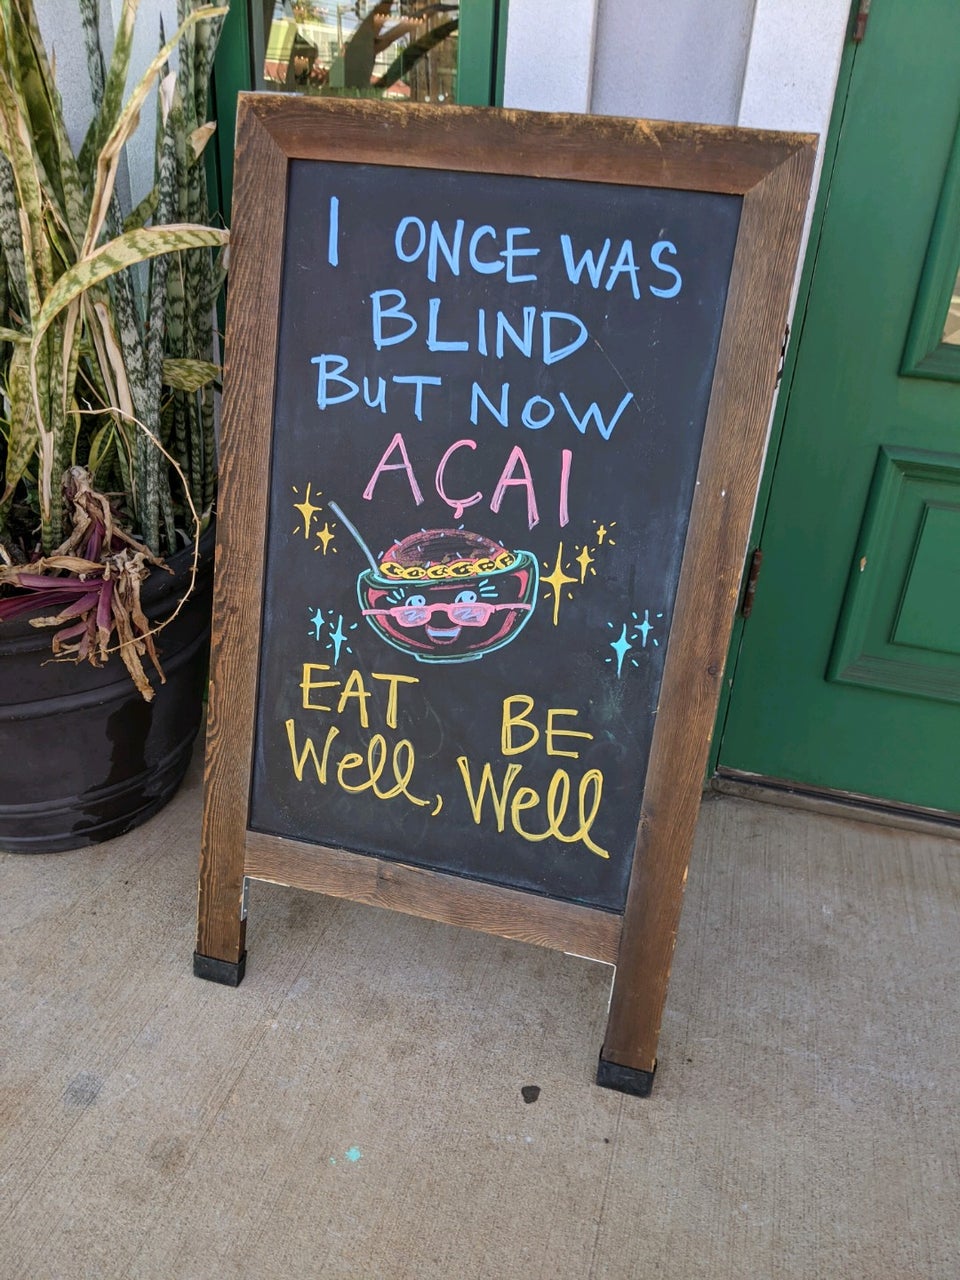 I ONCE WAS
BLIND
BUT NOW
AÇAI
EAT BE
Well, Well